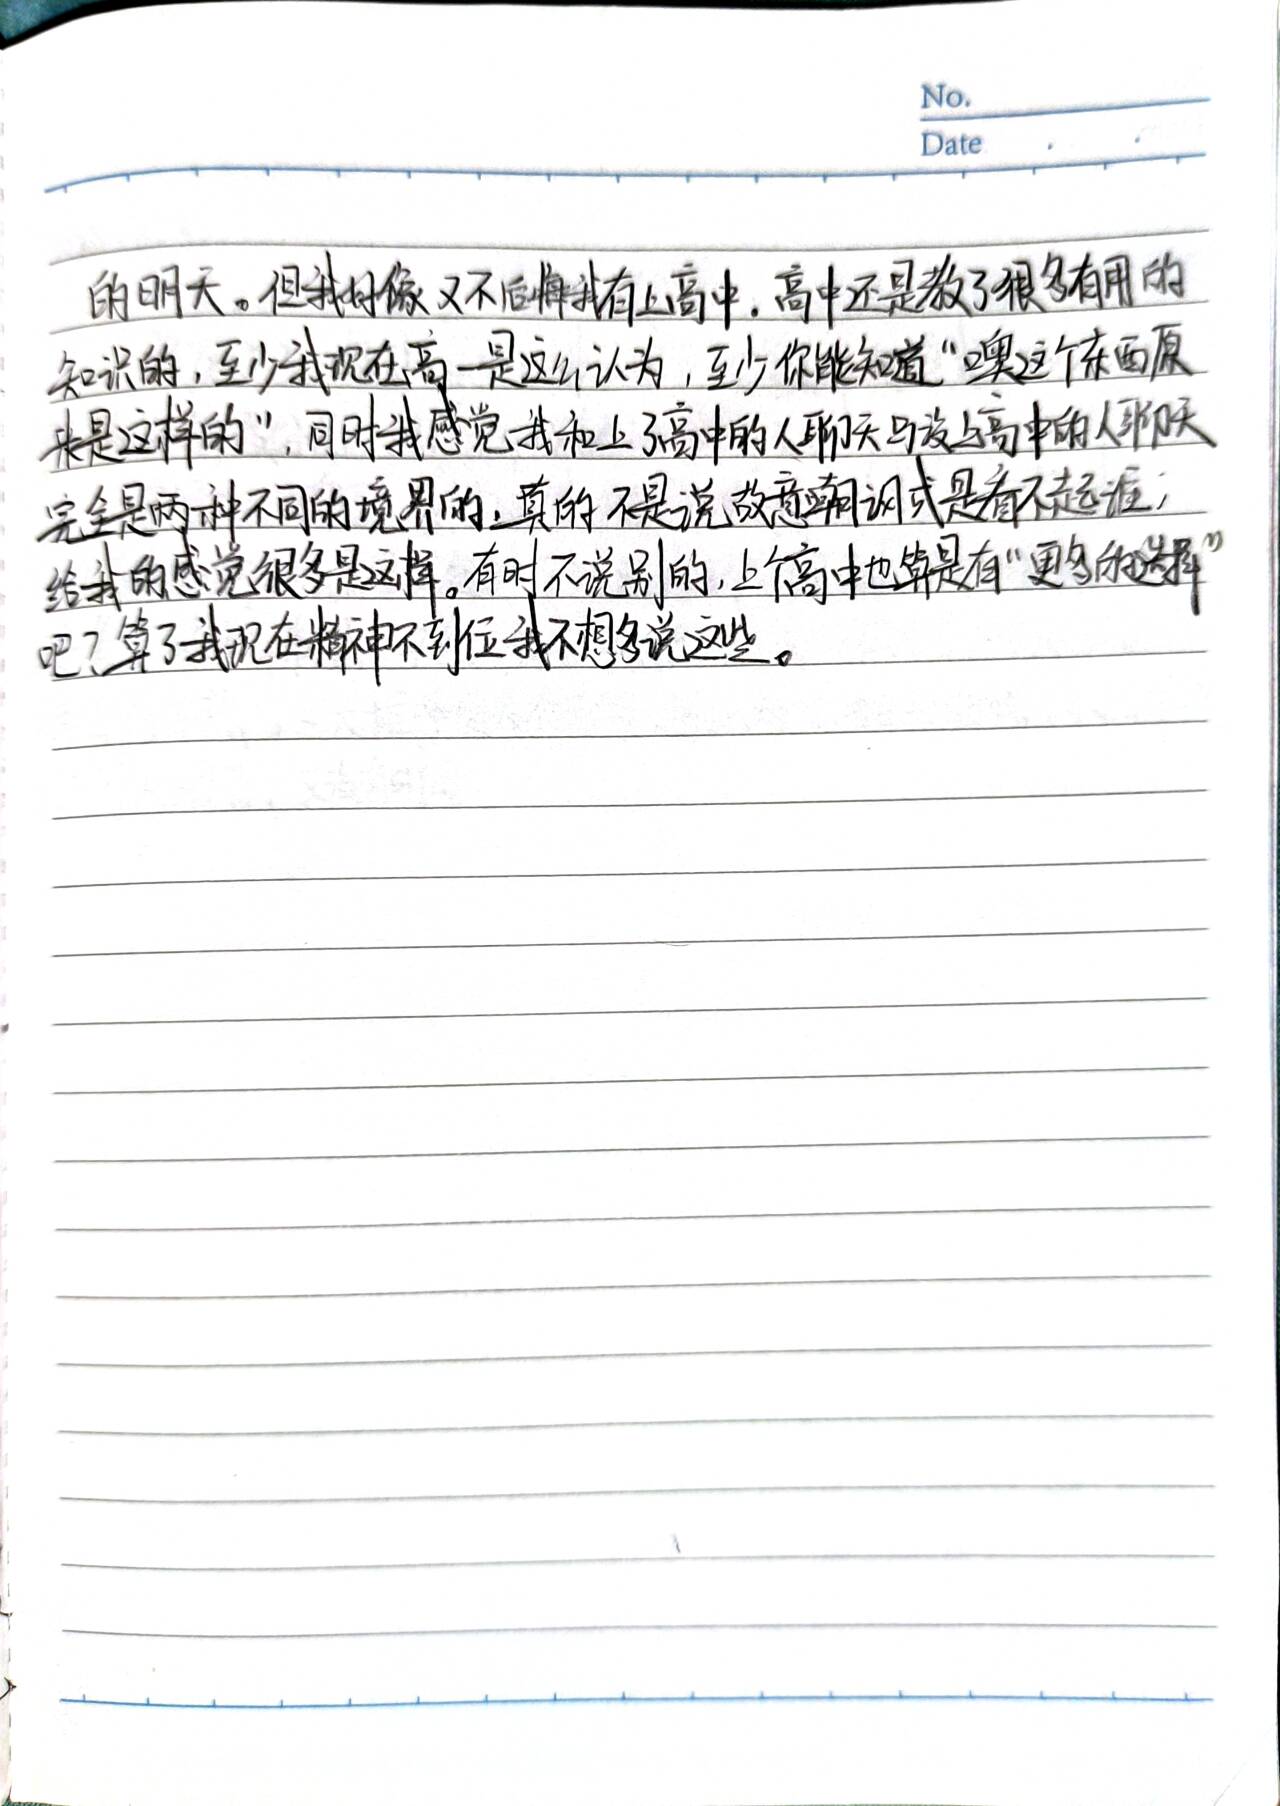 No.
Date
的明天。但我好像又不后悔我有上高中，高中还是教了很多有用的
知识的，至少我现在高一是这么认为，至少你能知道“噢这个东西原
来是这样的”，同时我感觉我和上了高中的人聊天与没上高中的人聊天
完全是两种不同的境界的，真的不是说故意嘲讽或是看不起谁，
给我的感觉很多是这样。有时不说别的，上个高中也算是有“更多的选择”
吧？算了我现在精神不到位我不想多说这些。